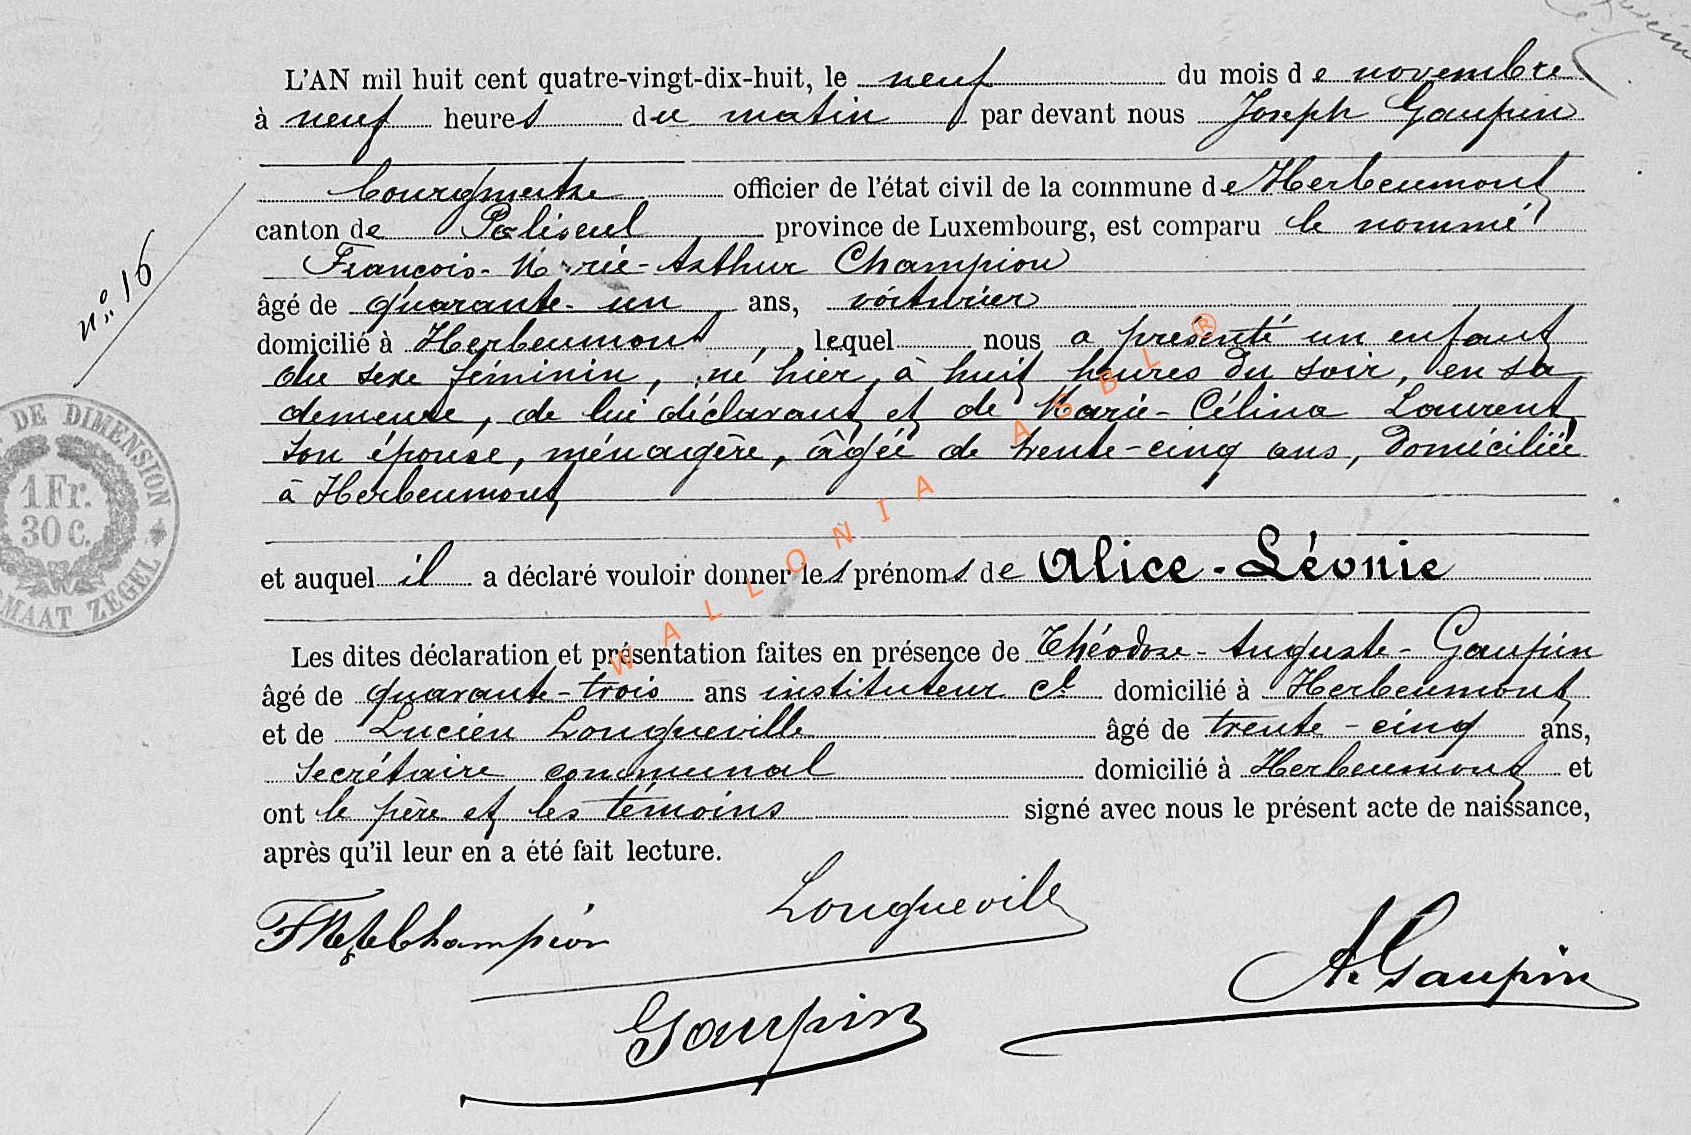 L'AN mil huit cent quatre-vingt-dix-huit, le neuf du mois de novembre
à neuf heures du matin par devant nous Joseph Gaupin
bourgmestre officier de l'état civil de la commune de Herbeumont
canton de Paliseul province de Luxembourg, est comparu le nommé
François-Marie-Arthur Champion
n° 16
âgé de quarante-un ans, voiturier
domicilié à Herbeumont, lequel nous a présenté un enfant
du sexe féminin, né hier, à huit heures du soir, en sa
demeure, de lui déclarant et de Marie-Célina Laurent
son épouse, ménagère, âgée de trente-cinq ans, domiciliée
à Herbeumont
DE DIMENSION
1 Fr.
30 C.
MAAT ZEGEL
et auquel il a déclaré vouloir donner les prénoms de Alice-Léonie
WALLONIA ASBL ®
Les dites déclaration et présentation faites en présence de Théodore-Auguste-Gaupin
âgé de quarante-trois ans instituteur ct domicilié à Herbeumont
et de Lucien Longueville âgé de trente-cinq ans,
secrétaire communal domicilié à Herbeumont et
ont le père et les témoins signé avec nous le présent acte de naissance,
après qu'il leur en a été fait lecture.
Longueville
Champion
A. Gaupin
Gaupin